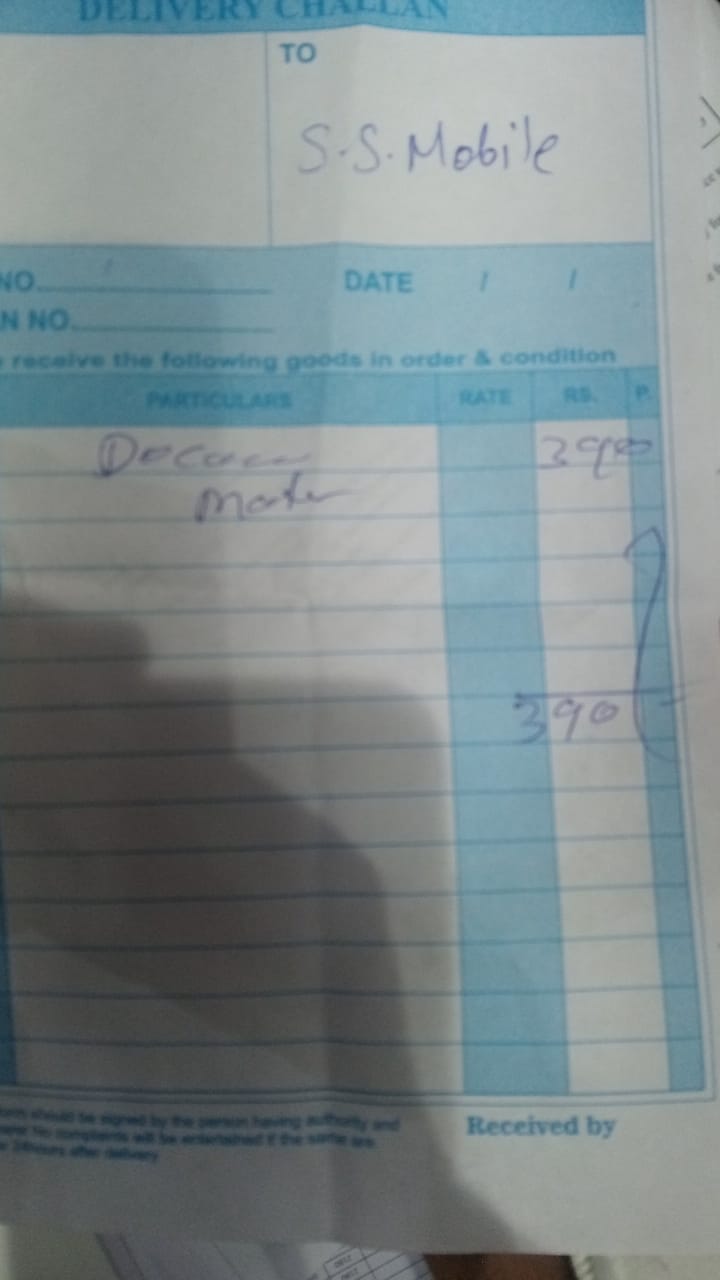 DELIVERY CHALLAN
TO
S.S. Mobile
NO.
DATE / /
N NO.
receive the following goods in order & condition
PARTICULARS RATE RS. P.
390
390
should be signed by the person having authority and
No complaints will be entertained if the same are
after delivery
Received by